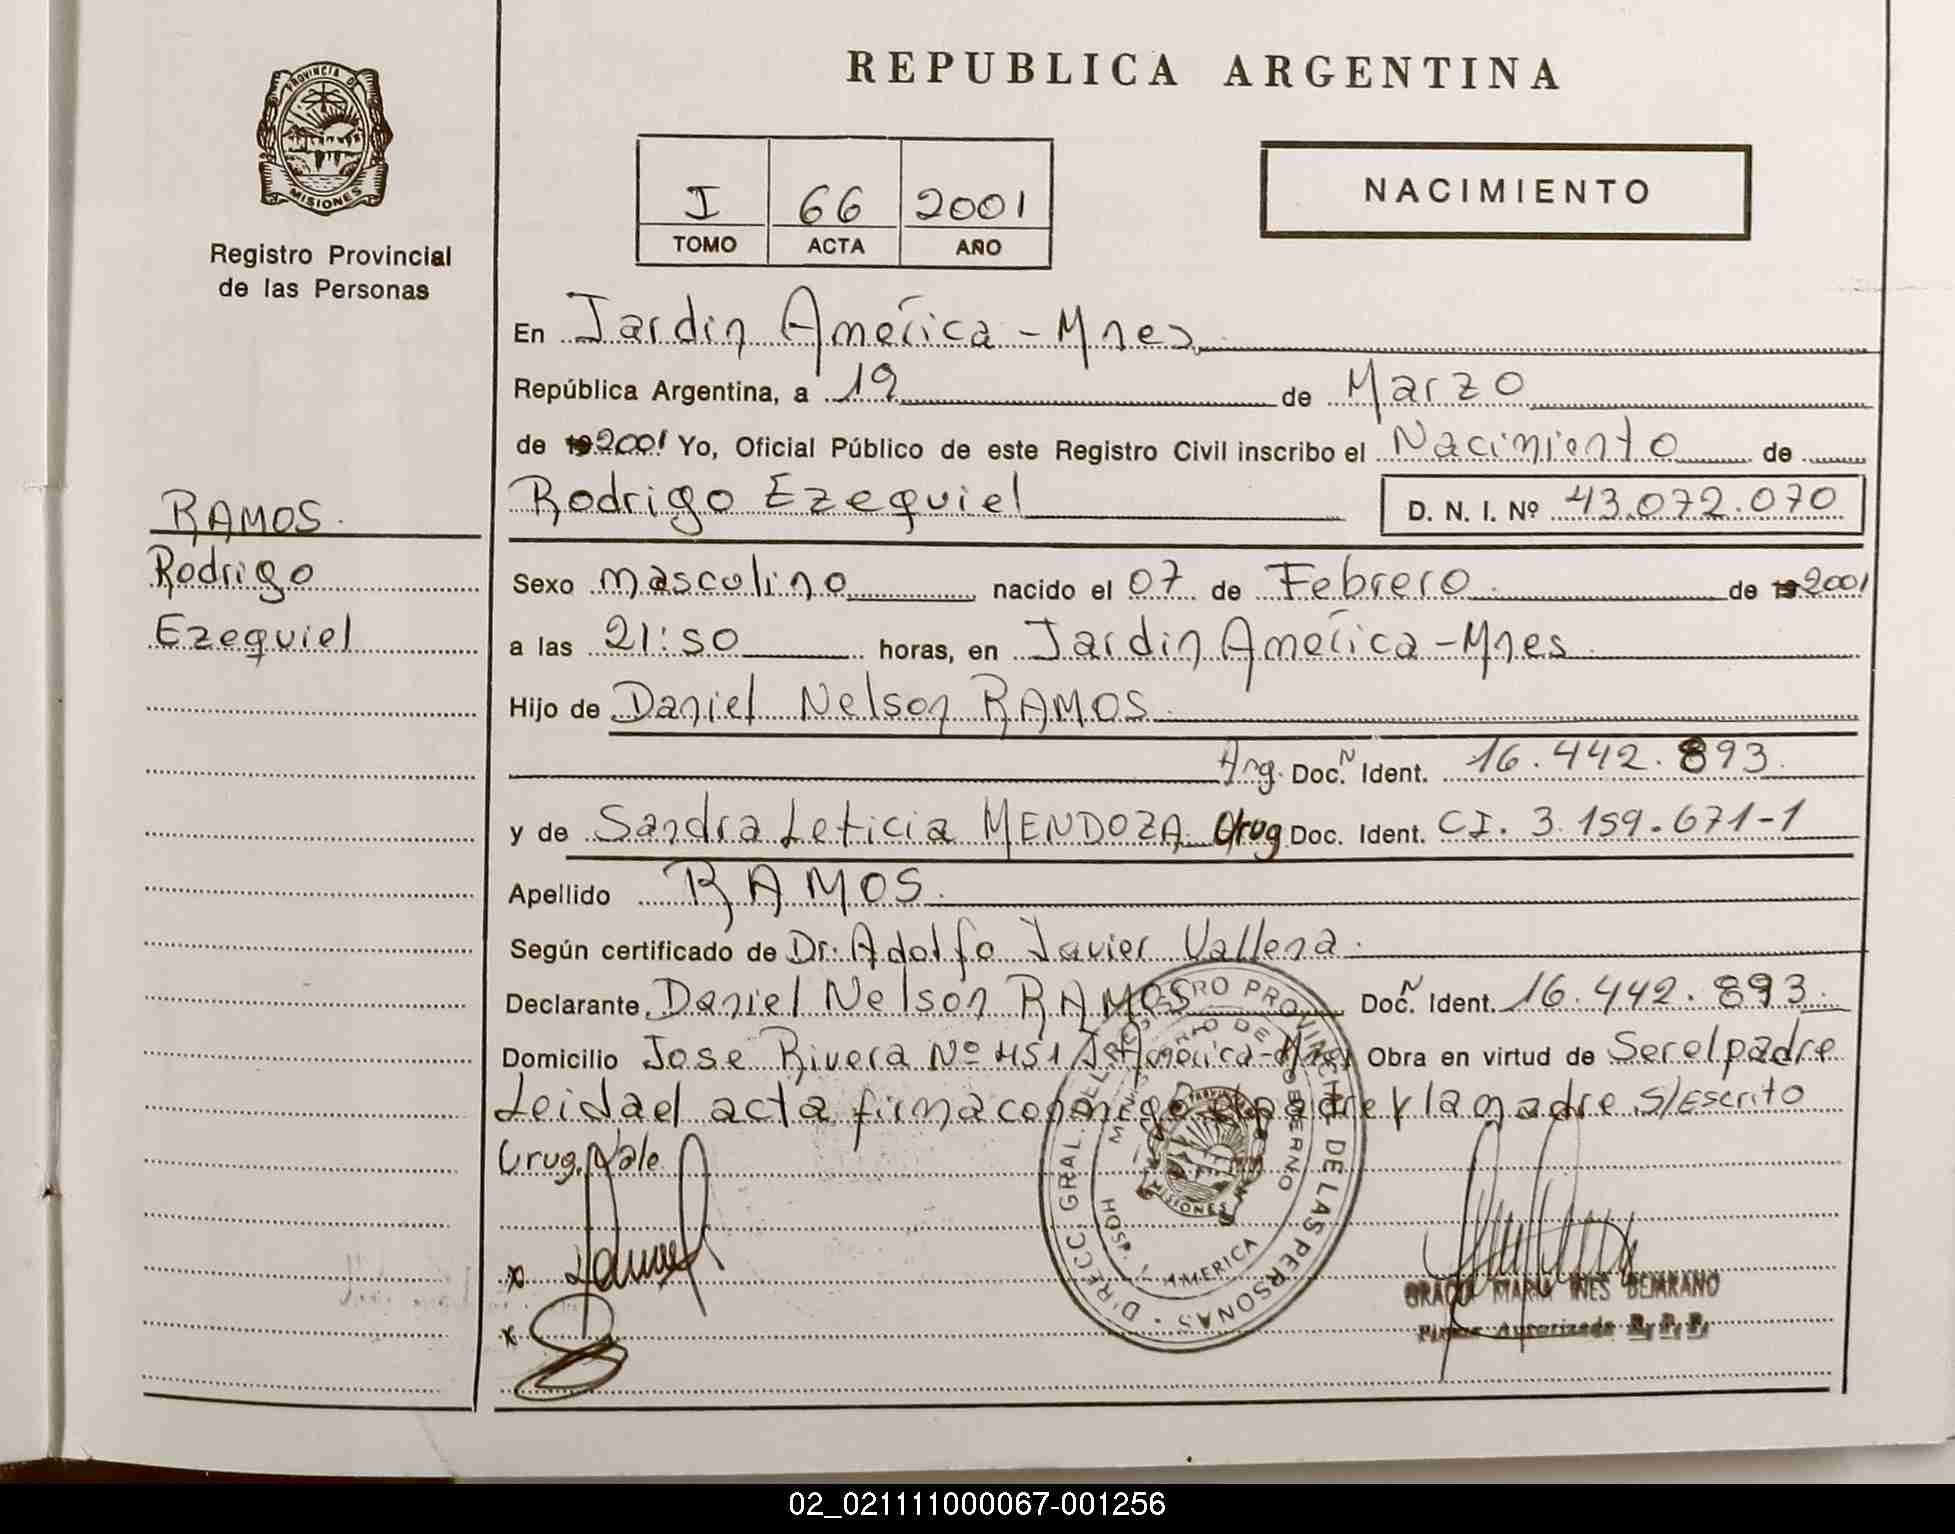 REPUBLICA ARGENTINA
PROVINCIA DE
MISIONES
Registro Provincial
de las Personas
I 66 2001
TOMO ACTA AÑO
NACIMIENTO
En Jardin América - Mnes
República Argentina, a 19 de Marzo
de 19 2001 Yo, Oficial Público de este Registro Civil inscribo el Nacimiento de
Rodrigo Ezequiel D. N. I. Nº 43.072.070
RAMOS.
Rodrigo
Ezequiel
Sexo masculino nacido el 07 de Febrero de 19 2001
a las 21:50 horas, en Jardin América - Mnes
Hijo de Daniel Nelson RAMOS
Arg. Doc. Ident. 16.442.893.
y de Sandra Leticia MENDOZA Urug Doc. Ident. CI. 3.159.671-1
Apellido RAMOS.
Según certificado de Dr. Adolfo Javier Vallena.
Declarante Daniel Nelson RAMOS Doc. Ident. 16.442.893.
Domicilio Jose Rivera Nº 451 J. América - Mnes Obra en virtud de Ser el padre
Leida el acta firma conmigo el padre y la madre S/Escrito
Urug. Vale
DIRECC GRAL. DEL REGISTRO PROVINCIAL DE LAS PERSONAS
MINISTERIO DE GOBIERNO
HOSP. J. AMERICA
MISIONES
x
x
MARIA INES BEJARANO
Firma Autorizada R. P. P.
02_021111000067-001256